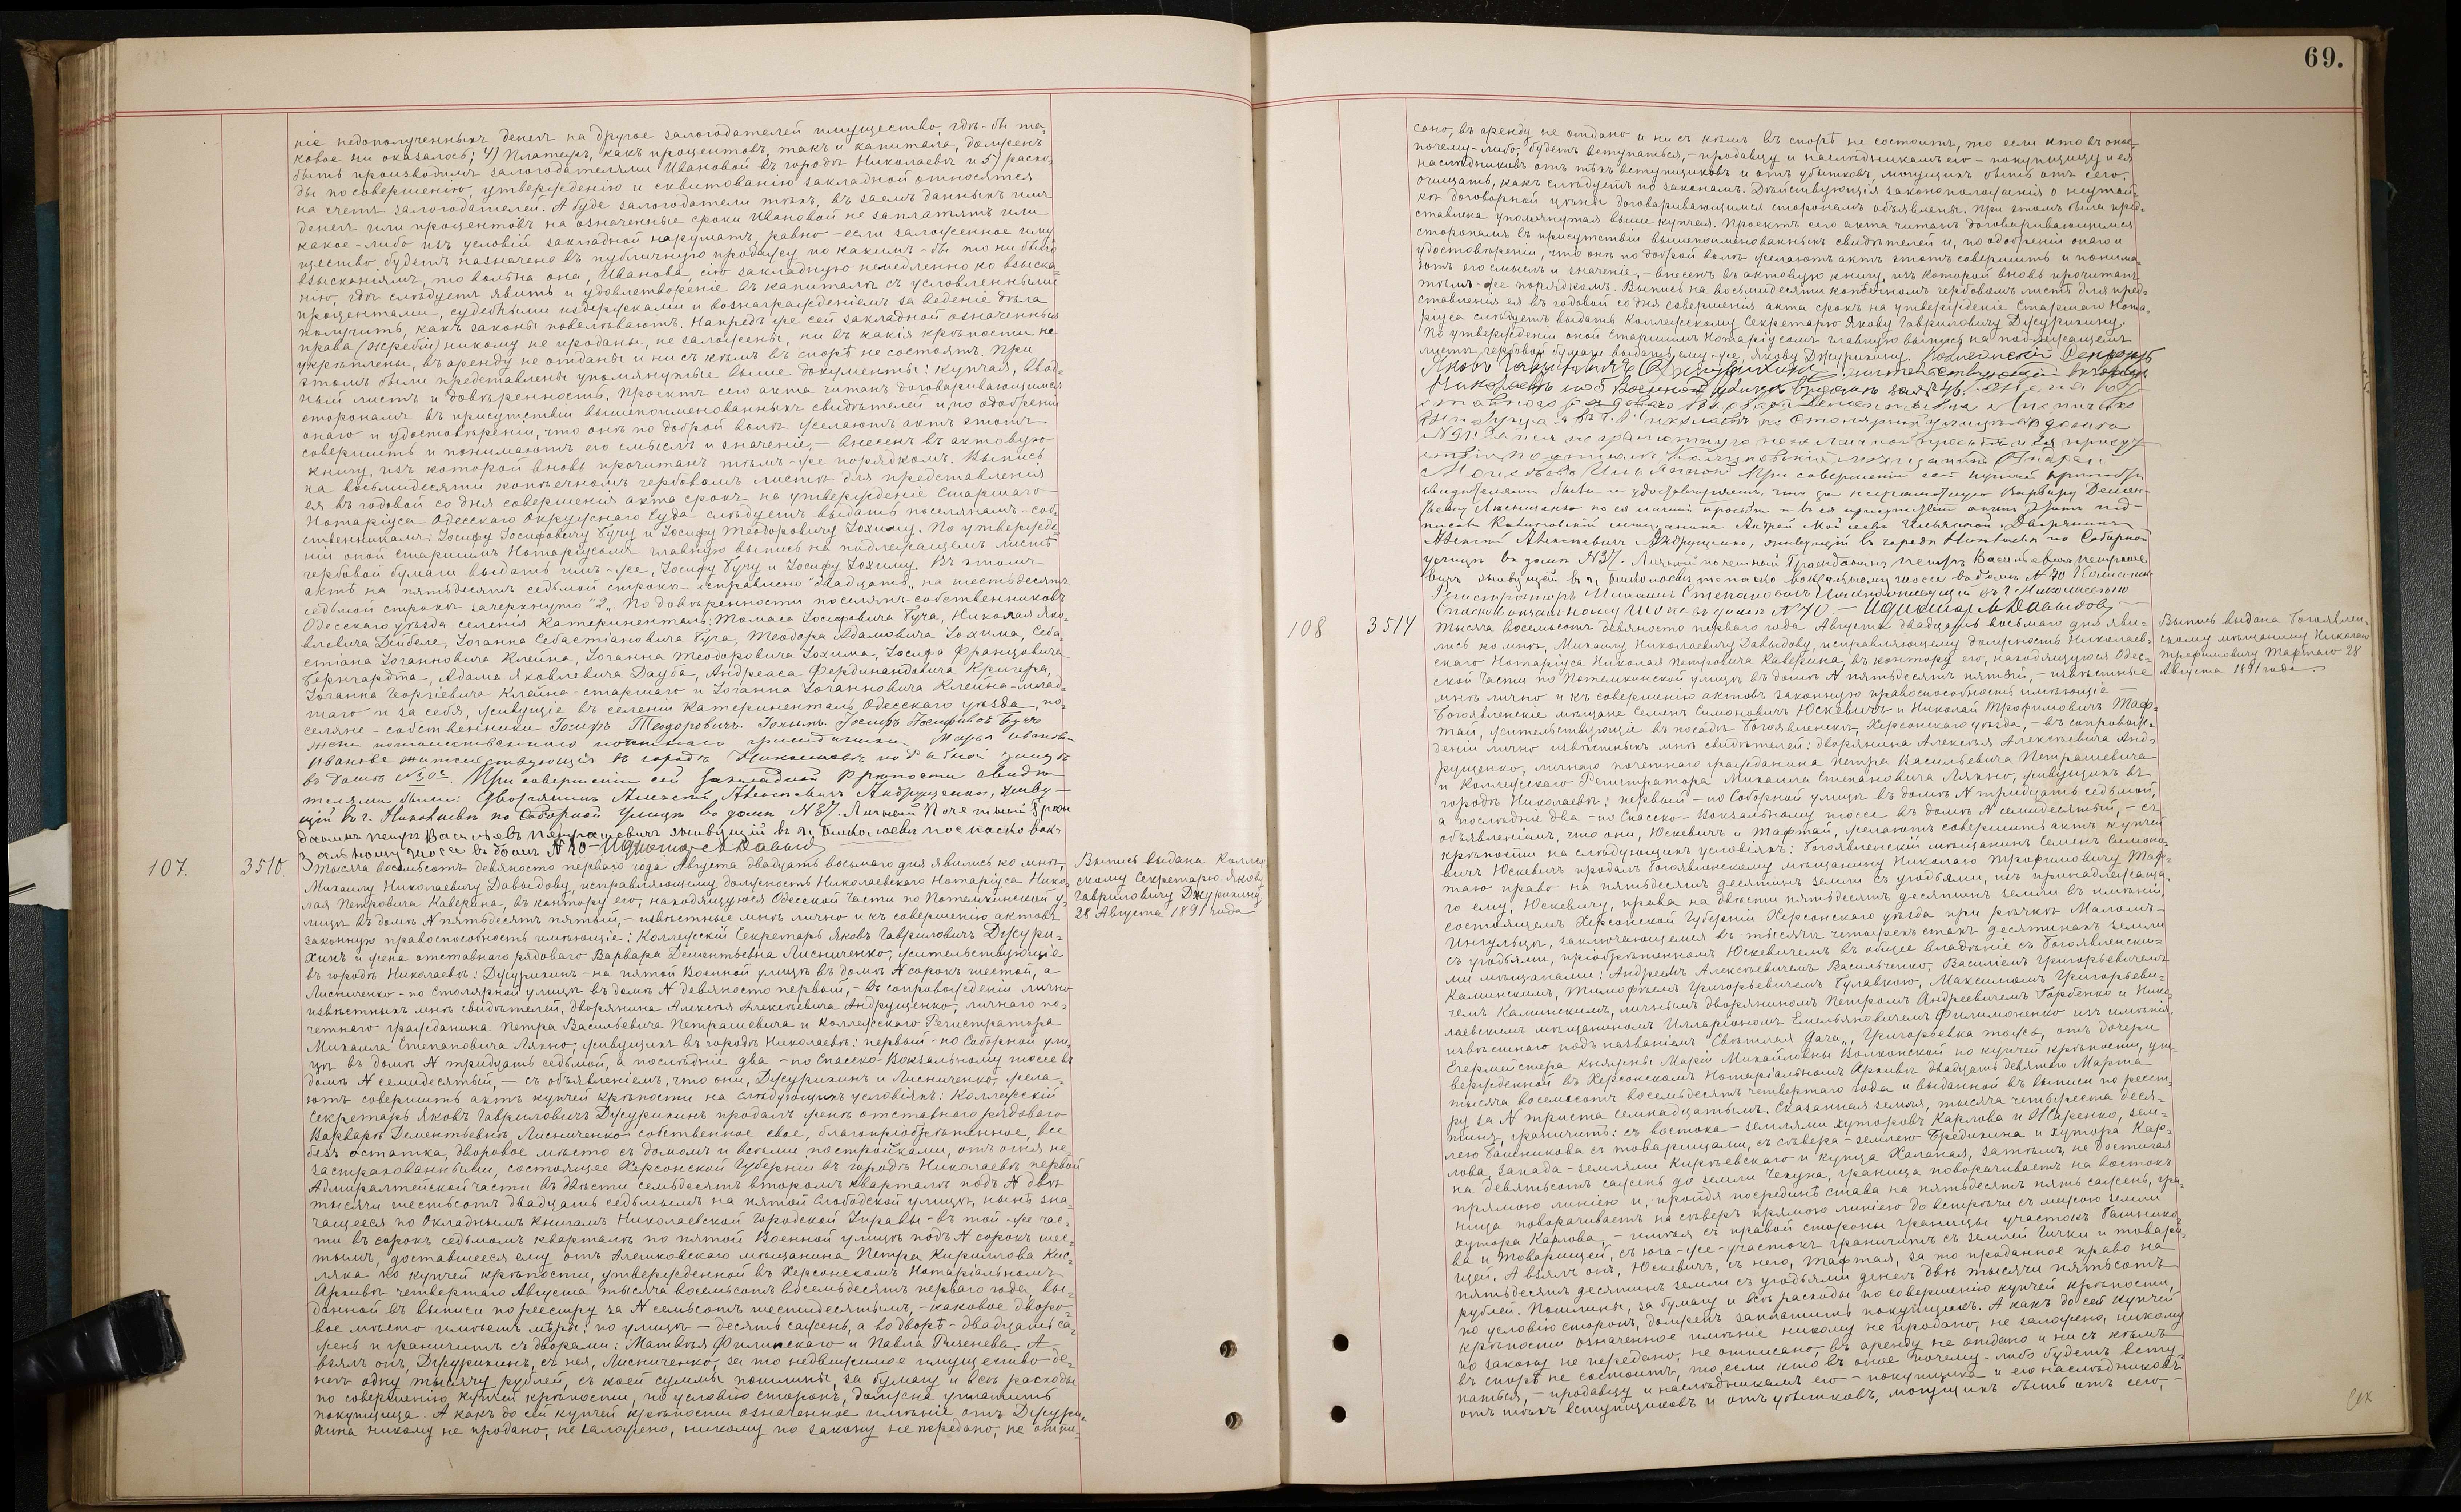 69.
ніе недополученныхъ денегъ на другое залогодателей имущество, гдѣ-бы та=
ковое ни оказалось; 4) Платежъ, какъ процентовъ, такъ и капитала, долженъ
быть производимъ залогодателями Ивановой въ городѣ Николаевѣ и 5) расхо=
ды по совершенію, утвержденію и сквитованію закладной относятся
на счетъ залогодателей. А буде залогодатели тѣхъ, въ заемъ данныхъ имъ
денегъ или процентовъ на означенные сроки Ивановой не заплатятъ или
какое-либо изъ условій закладной нарушатъ, равно-если заложенное иму=
щество будетъ назначено въ публичную продажу по какимъ-бы то ни было
взысканіямъ, то вольна она, Иванова, сію закладную немедленно ко взыска=
нію, гдѣ слѣдуетъ явить и удовлетвореніе въ капиталѣ съ условленными
процентами, судебными издержками и вознагражденіемъ за веденіе дѣла
получить, какъ законы повелѣваютъ. Напредъ же сей закладной означенныя
права (жребіи) никому не проданы, не заложены, ни въ какія крѣпости не
укрѣплены, въ аренду не отданы и ни съ кѣмъ въ спорѣ не состоятъ. При
этомъ были представлены упомянутые выше документы: купчая, ввод=
ный листъ и довѣренность. Проектъ сего акта читанъ договаривающимся
сторонамъ въ присутствіи вышепоименованныхъ свидѣтелей и, по одобреніи
онаго и удостовѣреніи, что онѣ по доброй волѣ желаютъ актъ этотъ
совершить и понимаютъ его смыслъ и значеніе,- внесенъ въ актовую
книгу, изъ которой вновь прочитанъ тѣмъ-же порядкомъ. Выпись
на восьмидесяти копѣечномъ гербовомъ листѣ для представленія
ея въ годовой со дня совершенія акта срокъ на утвержденіе Старшаго
Нотаріуса Одесскаго Окружнаго Суда слѣдуетъ выдать поселянамъ-соб=
ственникамъ: Іосифу Іосифовичу Бучу и Іосифу Теодоровичу Іохиму. По утвержде=
ніи оной старшимъ Нотаріусомъ главную выпись на подлежащемъ листѣ
гербовой бумаги выдать имъ-же, Іосифу Бучу и Іосифу Іохиму. Въ этомъ
актѣ на пятьдесятъ седьмой строкѣ исправлено "двадцать", на шестьдесятъ
седьмой строкѣ зачеркнуто "2". По довѣренности поселянъ-собственниковъ
Одесскаго уѣзда селенія Катериненталь: Томаса Іосифовича Буча, Николая Яко=
влевича Дейбеле, Іоганна Себастіановича Буча, Теодора Адамовича Іохима, Себа=
стіана Іоганновича Клейна, Іоганна Теодоровича Іохима, Іосифа Францовича
Бернгардта, Адама Яковлевича Дауба, Андреаса Фердинандовича Кригера,
Іоганна Георгіевича Клейна-старшаго и Іоганна Іоганновича Клейна-млад=
шаго и за себя, живущіе въ селеніи Катериненталь Одесскаго уѣзда, по=
селяне-собственники Іосифъ Теодоровичъ Іохимъ. Іосифъ Іосифовъ Бучъ
жена потомственнаго почетнаго гражданина Марья Ивановна
Иванова жительствующая въ городѣ Николаевѣ по Рыбной улицѣ
въ домѣ № 50й. При совершеніи сей закладной крѣпости свидѣ
телями были: Дворянинъ Алексѣй Алексѣевичъ Андрущенко, живу-
щій въ г. Николаевѣ по Соборной улицѣ въ домѣ № 37. Личный Почетный Граж
данинъ Петръ Васильевъ Петрашевичъ живущій въ г. Николаевѣ по Спасско вок=
зальному шоссе въ домѣ № 70 - И.д. Нотар. М Давыдов
107.
3510.
Тысяча восемьсотъ девяносто перваго года Августа двадцать восьмаго дня явились ко мнѣ,
Михаилу Николаевичу Давыдову, исправляющему должность Николаевскаго Нотаріуса Нико=
лая Петровича Каверина, въ контору его, находящуюся Одесской части по Потемкинской у=
лицѣ въ домѣ № пятьдесятъ пятый, - извѣстные мнѣ лично и къ совершенію актовъ
законную правоспособность имѣющіе: Коллежскій Секретарь Яковъ Гавриловичъ Джури=
хинъ и жена отставнаго рядоваго Варвара Дементьевна Лисниченко, жительствующіе
въ городѣ Николаевѣ: Джурихинъ-на пятой Военной улицѣ въ домѣ № сорокъ шестой, а
Лисниченко-по Столярной улицѣ въ домѣ № девяносто первый,- въ сопровожденіи лично
извѣстныхъ мнѣ свидѣтелей, дворянина Алексѣя Алексѣевича Андрущенко, личнаго по=
четнаго гражданина Петра Васильевича Петрашевича и Коллежскаго Регистратора
Михаила Степановича Ляхно, живущихъ въ городѣ Николаевѣ: первый-по Соборной ули=
цѣ въ домѣ № тридцать седьмой, а послѣдніе два - по Спасско-Вокзальному шоссе въ
домѣ № семидесятый, - съ объявленіемъ, что они, Джурихинъ и Лисниченко, жела=
ютъ совершить актъ купчей крѣпости на слѣдующихъ условіяхъ: Коллежскій
Секретарь Яковъ Гавриловичъ Джурихинъ продалъ женѣ отставнаго рядоваго
Варварѣ Дементьевнѣ Лисниченко собственное свое, благопріобрѣтенное, все
безъ остатка, дворовое мѣсто съ домомъ и всѣми постройками, отъ огня не
застрахованными, состоящее Херсонской Губерніи въ городѣ Николаевѣ первой
Адмиралтейской части въ двѣсти семьдесятъ второмъ кварталѣ подъ № двѣ
тысячи шестьсотъ двадцать седьмымъ на пятой Слободской улицѣ, нынѣ зна=
чащееся по Окладнымъ книгамъ Николаевской Городской Управы-въ той-же час=
ти въ сорокъ седьмомъ кварталѣ по пятой Военной улицѣ подъ № сорокъ шес=
тымъ, доставшееся ему отъ Алешковскаго мѣщанина Петра Кириллова Кис=
ляка по купчей крѣпости, утвержденной въ Херсонскомъ Нотаріальномъ
Архивѣ четвертаго Августа тысяча восемьсотъ восемьдесятъ перваго года и вы=
данной въ выписи по реестру за № семьсотъ шестидесятымъ,- каковое дворо=
вое мѣсто имѣетъ мѣры: по улицѣ - десять сажень, а во дворѣ-двадцать са=
жень и граничитъ съ дворами: Матвѣя Филинскаго и Павла Риченева. А
взялъ онъ, Джурихинъ, съ нея, Лисниченко, за то недвижимое имущество де=
негъ одну тысячу рублей, съ коей суммы пошлины, за бумагу и всѣ расходы
по совершенію купчей крѣпости, по условію сторонъ, должна уплатить
покупщица. А какъ до сей купчей крѣпости означенное имѣніе отъ Джури=
хина никому не продано, не заложено, никому по закону не передано, не отпи=
Выпись выдана Коллеж
скому Секретарю Якову
Гавриловичу Джурихину
28 Августа 1891 года
сано, въ аренду не отдано и ни съ кѣмъ въ спорѣ не состоитъ, то если кто въ оное
почему-либо будетъ вступаться,- продавцу и наслѣдникамъ его - покупщицу и ея
наслѣдниковъ отъ тѣхъ вступщиковъ и отъ убытковъ, могущихъ быть отъ сего,
очищать, какъ слѣдуетъ по законамъ. Дѣйствующія законоположенія о неутай=
кѣ договорной цѣны договаривающимся сторонамъ объявлены. При этомъ была пред=
ставлена упомянутая выше купчая. Проектъ сего акта читанъ договаривающимся
сторонамъ въ присутствіи вышепоименованныхъ свидѣтелей и, по одобреніи онаго и
удостовѣреніи, что онѣ по доброй волѣ желаютъ актъ этотъ совершить и понима=
ютъ его смыслъ и значеніе,- внесенъ въ актовую книгу, изъ которой вновь прочитанъ
тѣмъ-же порядкомъ. Выпись на восьмидесяти копѣечномъ гербовомъ листѣ для пред=
ставленія ея въ годовой со дня совершенія акта срокъ на утвержденіе Старшаго Нота=
ріуса слѣдуетъ выдать Коллежскому Секретарю Якову Гавриловичу Джурихину.
По утвержденіи оной Старшимъ Нотаріусомъ главную выпись на подлежащемъ
листѣ гербовой бумаги выдать ему-же, Якову Джурихину. Коллежскій Секретарь
Яковъ Гавриловичъ Джурихинъ, жительствующій въ городѣ
Николаевѣ по 5 Военной улицѣ въ домѣ за № 46. Жена от
ставного рядового Варвара Дементьевна Лисниченко
живущая въ г. Николаевѣ по Столярной улицѣ въ домѣ
№ 91 а за нея неграмотную по ея личной просьбѣ и въ ея присут
ствіи мѣщанинъ Андрей
Моисеевъ Ильяшкой При совершеніи сей купчей крѣпости
свидѣтелями были и удостовѣряемъ, что за неграмотную Варвару Демен-
тьевну Лисниченко по ея личной просьбѣ и въ ея присутствіи актъ этотъ под-
писалъ мѣщанинъ Андрей Моисеевъ Ильяшкой. Дворянинъ
Алексѣй Алексѣевичъ Андрущенко, живущій въ городѣ Николаевѣ по Соборной
улицѣ въ домѣ № 37. Личный почетный Гражданинъ Петръ Васильевичъ Петраше
вичъ живущій въ г. Николаевѣ по Спасско вокзальному шоссе въ домѣ № 70 Коллежскій
Регистраторъ Михаилъ Степановичъ Ляхно живущій въ г. Николаевѣ по
Спасско Вокзальному шоссе въ домѣ № 70. - И.д. Нотар. М Давыдов
108
3514
Тысяча восемьсотъ девяносто перваго года Августа двадцать восьмаго дня яви=
лись ко мнѣ, Михаилу Николаевичу Давыдову, исправляющему должность Николаев=
скаго Нотаріуса Николая Петровича Каверина, въ контору его, находящуюся Одес=
ской части по Потемкинской улицѣ въ домѣ № пятьдесятъ пятый, - извѣстные
мнѣ лично и къ совершенію актовъ законную правоспособность имѣющіе -
Богоявленскіе мѣщане Семенъ Симоновичъ Юскевичъ и Николай Трофимовичъ Таф=
тай, жительствующіе въ посадѣ Богоявленскѣ, Херсонскаго уѣзда, - въ сопровож=
деніи лично извѣстныхъ мнѣ свидѣтелей: дворянина Алексѣя Алексѣевича Анд=
рущенко, личнаго почетнаго гражданина Петра Васильевича Петрашевича
и Коллежскаго Регистратора Михаила Степановича Ляхно, живущихъ въ
городѣ Николаевѣ: первый - по Соборной улицѣ въ домѣ № тридцать седьмой,
а послѣдніе два - по Спасско-Вокзальному шоссе въ домѣ № семидесятый, - съ
объявленіемъ, что они, Юскевичъ и Тафтай, желаютъ совершить актъ купчей
крѣпости на слѣдующихъ условіяхъ: Богоявленскій мѣщанинъ Семенъ Симоно=
вичъ Юскевичъ продалъ Богоявленскому мѣщанину Николаю Трофимовичу Таф=
таю право на пятьдесятъ десятинъ земли съ угодьями, изъ принадлежаща=
го ему, Юскевичу, права на двѣсти пятьдесятъ десятинъ земли въ имѣніи,
состоящемъ Херсонской Губерніи Херсонскаго уѣзда при рѣчкѣ Маломъ-
Ингульцѣ, заключающемся въ тысячѣ четырехъ стахъ десятинахъ земли
съ угодьями, пріобрѣтенномъ Юскевичемъ въ общее владѣніе съ Богоявленски=
ми мѣщанами: Андреемъ Алексѣевичемъ Васильченко, Василіемъ Григорьевичемъ
Калинскимъ, Тимофѣемъ Григорьевичемъ Булавкою, Максимомъ Григорьеви=
чемъ Калинскимъ, личнымъ дворяниномъ Петромъ Андреевичемъ Горбенко и Нико=
лаевскимъ мѣщаниномъ Илларіономъ Емельяновичемъ Филимоненко изъ имѣнія,
извѣстнаго подъ названіемъ "Свѣтлая Дача", Григорьевка тожъ, отъ дочери
Егермейстера Княжны Маріи Михайловны Волконской по купчей крѣпости, ут=
вержденной въ Херсонскомъ Нотаріальномъ Архивѣ двадцать девятаго Марта
тысяча восемьсотъ восемьдесятъ четвертаго года и выданной въ выписи по реест=
ру за № триста семнадцатымъ. Сказанная земля, тысяча четыреста деся=
тинъ, граничитъ: съ востока - землями хуторовъ Карлова и Жаренко, зем=
лею Башникова съ товарищами, съ сѣвера - землею Бредихина и хутора Кар=
лова, запада - землями Кирѣевскаго и купца Халапая, затѣмъ, не достигая
на девятьсотъ сажень до земли Чекуна, граница поворачиваетъ на востокъ
прямою линіею и, пройдя посрединѣ става на пятьдесятъ пять сажень, гра=
ница поворачиваетъ на сѣверъ прямою линіею до встрѣчи съ межою земли
хутора Карлова,- имѣя съ правой стороны границы участокъ Башнико=
ва и товарищей, съ юга-же-участокъ граничитъ съ землей Гички и товари=
щей. А взялъ онъ, Юскевичъ, съ него, Тафтая, за то проданное право на
пятьдесятъ десятинъ земли съ угодьями денегъ двѣ тысячи пятьсотъ
рублей. Пошлины, за бумагу и всѣ расходы по совершенію купчей крѣпости,
по условію сторонъ, долженъ заплатить покупщикъ. А какъ до сей купчей
крѣпости означенное имѣніе никому не продано, не заложено, никому
по закону не передано, не отписано, въ аренду не отдано и ни съ кѣмъ
въ спорѣ не состоитъ, то, если кто въ оное почему-либо будетъ всту=
паться, - продавцу и наслѣдникамъ его - покупщика и его наслѣдниковъ
отъ тѣхъ вступщиковъ и отъ убытковъ, могущихъ быть отъ сего,-
Выпись выдана Богоявлен=
скому мѣщанину Николаю
Трофимовичу Тафтаю 28
Августа 1891 года.